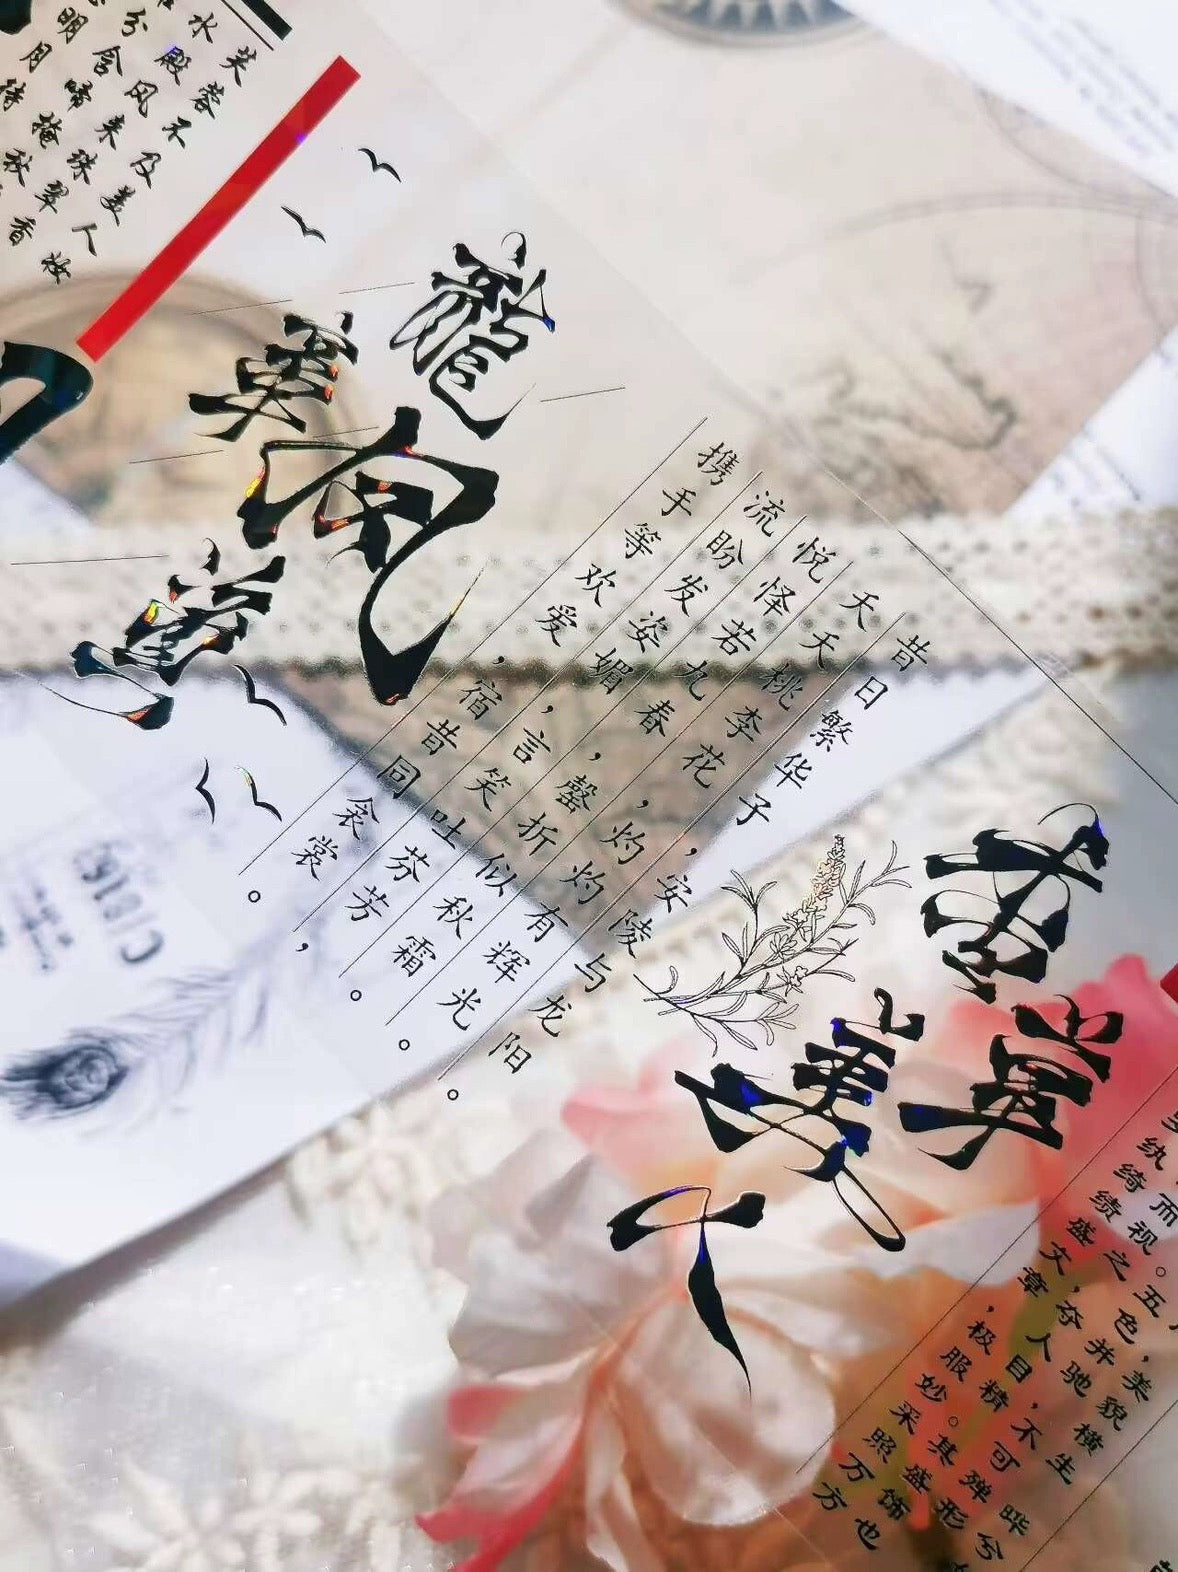 芙蓉不及美人妆
水殿风来珠翠香
分含啼掩秋
明月待
龍
昔日繁华子，安陵与龙阳。
夭夭桃李花，灼灼有辉光。
悦怿若九春，罄折似秋霜。
流盼发姿媚，言笑吐芬芳。
携手等欢爱，宿昔同衾裳。
香草美人
美貌横生晔兮
五色，并驰不可殚形
而视之，夺人目精。其盛饰也
纨绮绩盛文章，极服妙采照万方